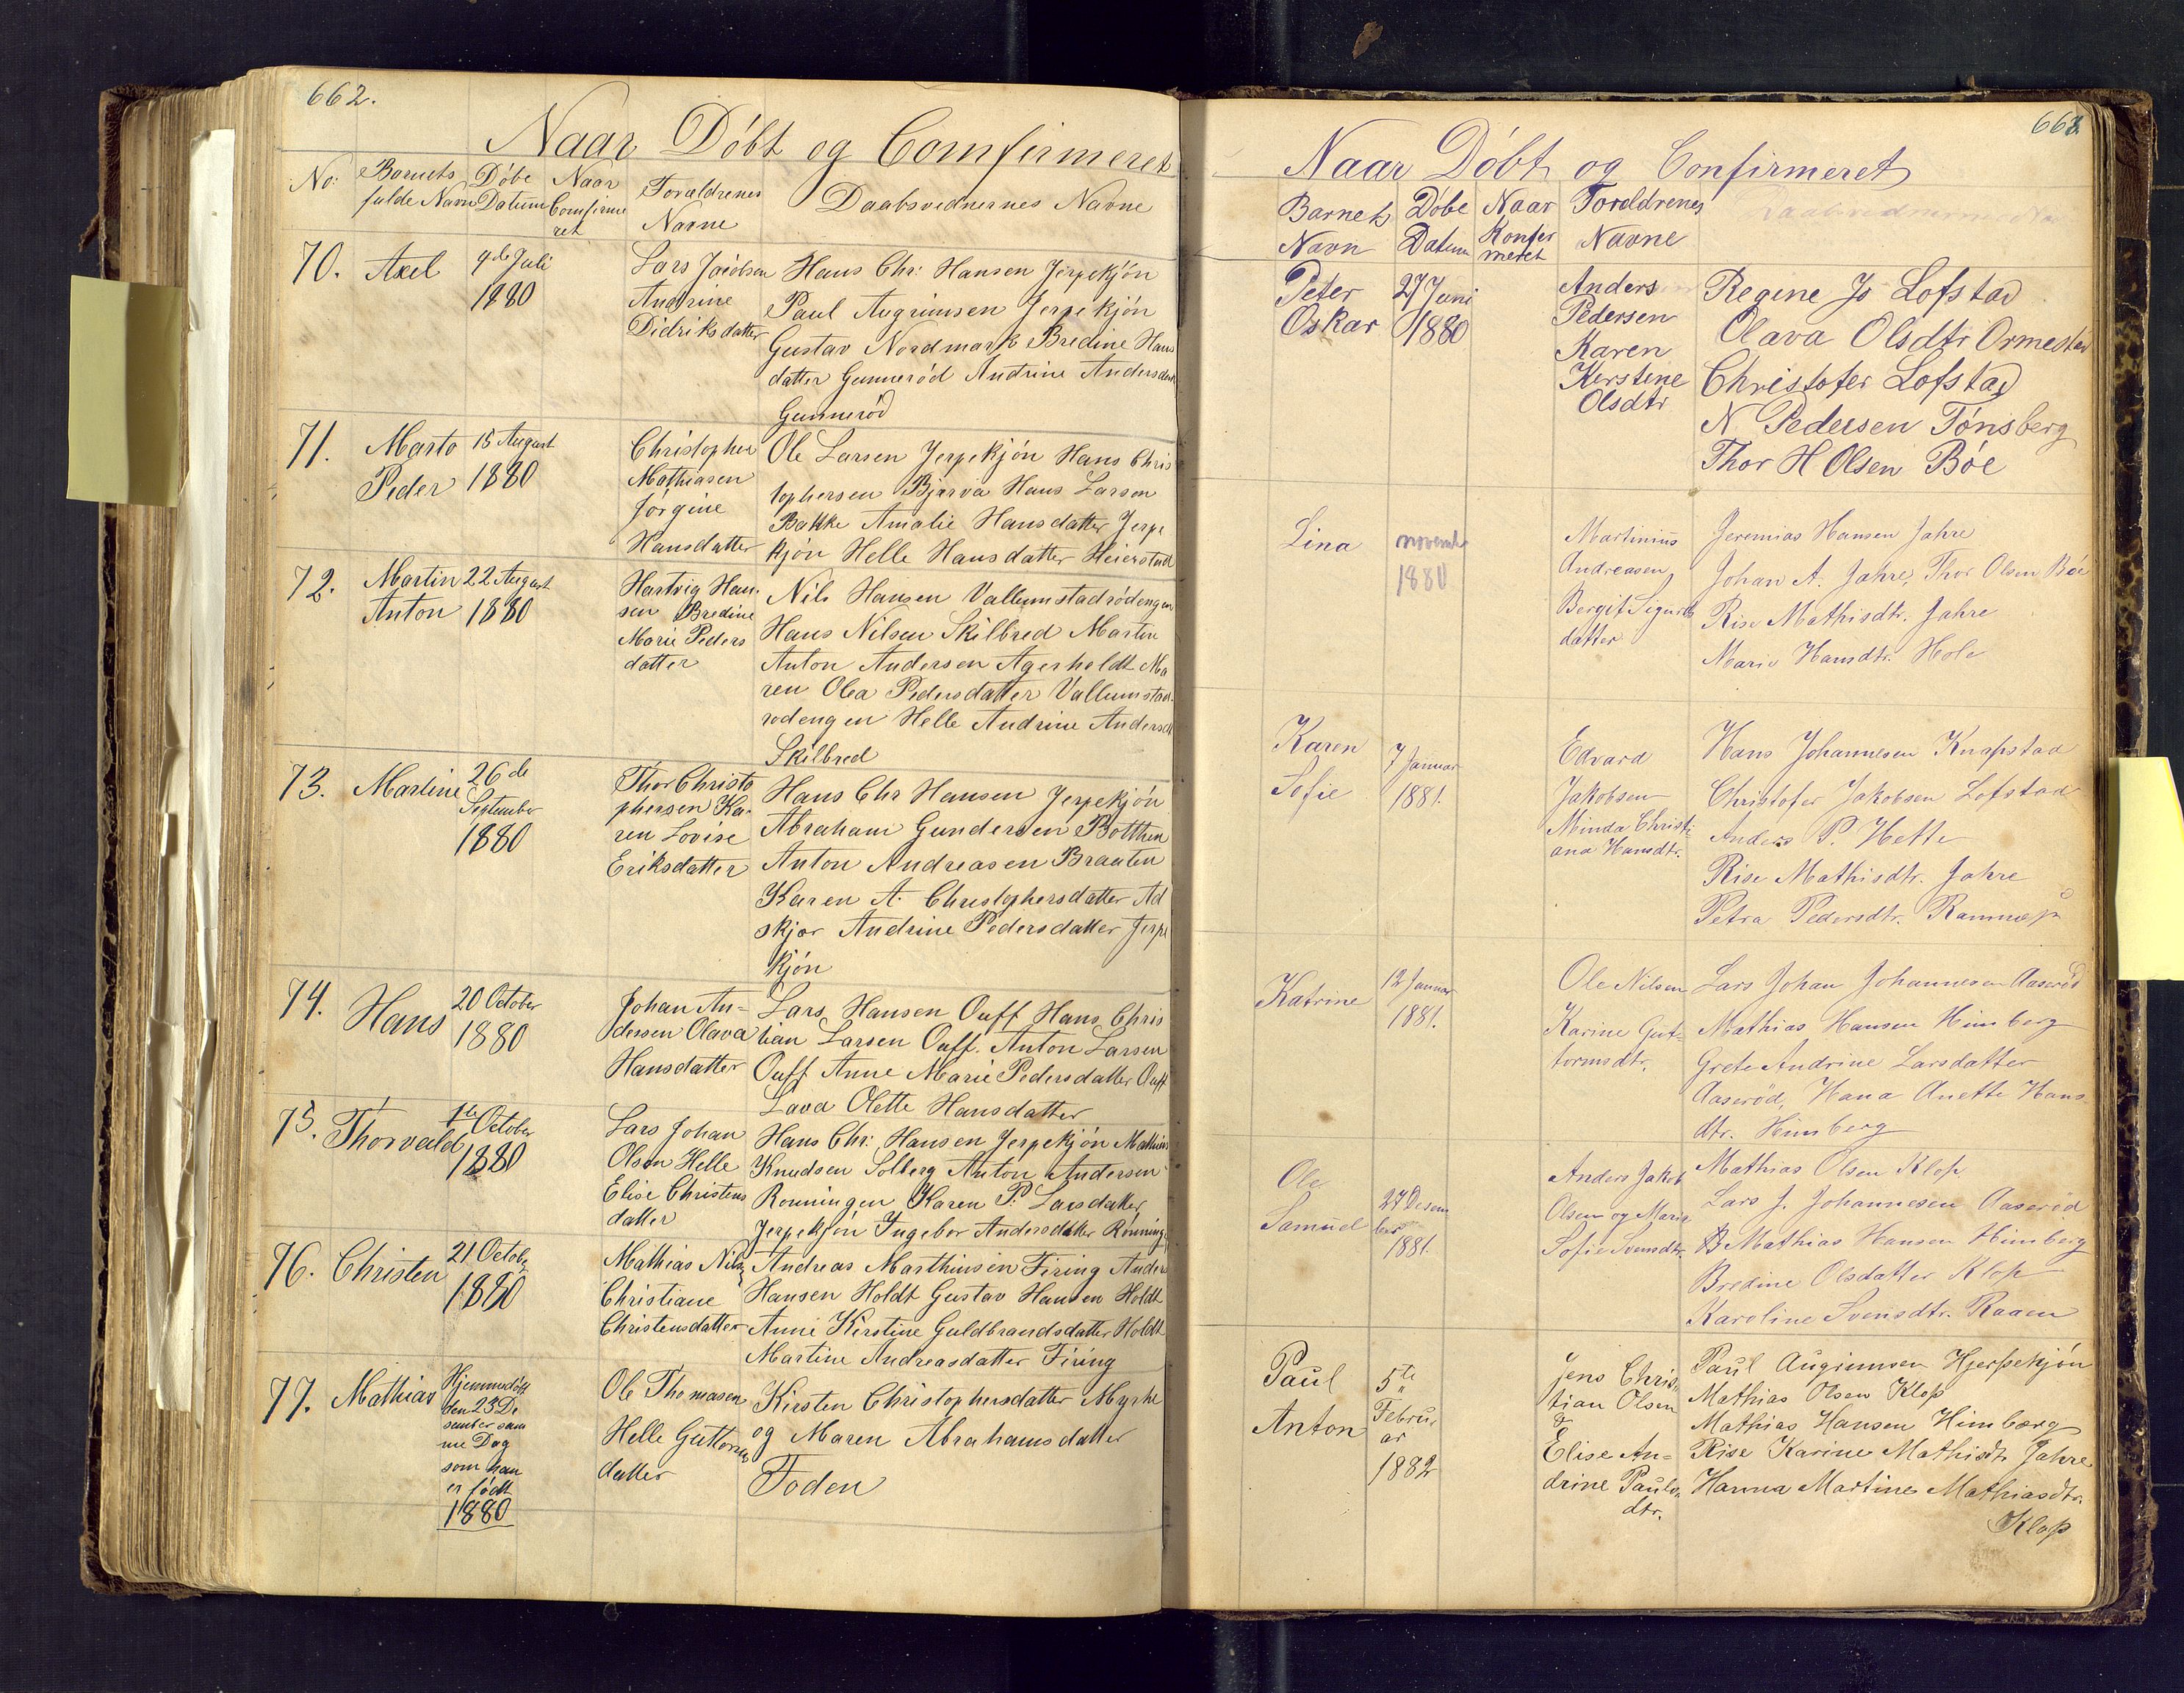 662.
Naar Döbt og Comfirmeret
No: Barnets fulde Navn Döbe Datum Naar Comfirmeret Foraldrenes Navne Daabsvednernes Navne
70. Axel
9de Juli
1880
Lars Jacobsen
Andrine
Didriksdatter
Hans Chr: Hansen Jerpekjön
Paul Augrimsen Jerpekjön
Gustav Nordmark Bredine Hans
datter Gunneröd Andrine Andersdatt
Gunneröd
71. Marto
Peder
15 August
1880
Christopher
Mathiasen
Jörgine
Hansdatter
Ole Larsen Jerpekjön Hans Chris
tophersen Bjarva Hans Larsen
Bakke Amalie Hansdatter Jerpe
kjön Helle Hansdatter Heierstad
72. Martin
Anton
22 August
1880
Hartvig Han-
sen Bredine
Marie Peders
datter
Nils Hansen Vallumstadrödengen
Hans Nilsen Skilbred Martin
Anton Andersen Agerholdt Ma
ren Olea Pedersdatter Vallumstad-
rodengen Helle Andrine Andersdt
Skilbred
73. Martine
26de
September
1880
Thor Christo
phersen Ka-
ren Lovise
Eriksdatter
Hans Chr Hansen Jerpekjön
Abraham Gundersen Botthen
Anton Andreasen Braaten
Karen A. Christophersdatter Ad
skjær Andrine Pedersdatter Jerpe
kjön
74. Hans
20 October
1880
Johan An-
dersen Olava
Hansdatter
Lars Hansen Ouff Hans Chris
tian Larsen Ouff. Anton Larsen
Ouff Anne Marie Pedersdatter Ouff
Lava Olette Hansdatter
75. Thorvald
1te October
1880
Lars Johan
Olsen Helle
Elise Christens
datter
Hans Chr: Hansen Jerpekjön Mathias
Knudsen Solberg Anton Andersen
Ronningen Karen P. Larsdatter
Jerpekjön Ingebor Andersdatter Rönning
76. Christen
21 October
1880
Mathias Nils
Christiane
Christensdatter
Andreas Marthinsen Firing Anders
Hansen Holdt Gustav Hansen Holdt
Anne Kirstine Guldbrandsdatter Holdt
Martine Andreasdatter Firing
77. Mathias
Hjemmedöbt
den 23 De
sember sam
me Dag
som han
er födt
1880
Ole Thomasen
Helle Guttorms
datter
Kirsten Christophersdatter Myrke
og Maren Abrahamsdatter
Foden
663.
Naar Döbt og Confirmeret
Barnets Navn Döbe Datum Naar Konfermeret Foreldrenes Navne
Peter
Oskar
27 Juni
1880
Anders
Pedersen
Karen
Kerstene
Olsdtr
Regine Js Lofstad
Olava Olsdtr Ormestad
Christofer Lofstad
N. Pedersen Tönsberg
Thor H Olsen Böe
Lina
november
1880
Martinius
Andreasen
Bergit Sigurds
datter
Jeremias Hansen Jahre
Johan A. Jahre, Thor Olsen Böe
Rise Mathisdtr. Jahre
Marie Hansdtr. Hole
Karen
Sofie
7 Januar
1881.
Edvard
Jakobsen
Minda Christi-
ana Hansdtr.
Hans Johannesen Knapstad
Christofer Jakobsen Lofstad
Anders P. Hette
Rise Mathisdtr. Jahre
Petra Pedersdtr. Ramnæs
Katrine
12 Januar
1881.
Ole Nilsen
Karine Gut-
tormsdtr.
Lars Johan Johannesen Aaseröd
Mathias Hansen Himberg
Grete Andrine Larsdatter
Aaseröd, Hana Anette Hans-
dtr. Himberg
Ole
Samuel
27 Desem
ber
1881.
Anders Jakob
Olsen og Marie
Sofie Svensdtr.
Mathias Olsen Klop
Lars J. Johannesen Aaseröd
Mathias Hansen Himberg
Bredine Olsdatter Klop
Karoline Svensdtr. Raaen
Paul
Anton
5te
Febru-
ar
1882
Jens Chris-
tian Olsen
&
Elise An-
drine Pauls-
dtr.
Paul Augrimsen Hjerpekjön
Mathias Olsen Klop
Mathias Hansen Himbærg
Rise Karine Mathisdtr Jahre
Hanna Martine Mathiasdtr.
Klop